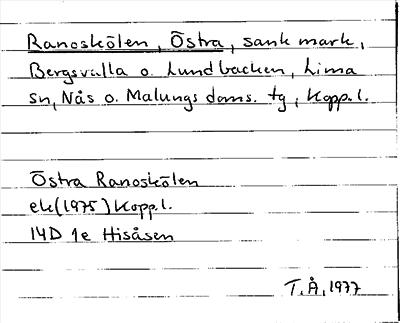 Ranoskölen, Östra, sank mark,
Bergsvalla o. Lundbacken, Lima
sn, Nås o. Malungs doms. tg, Kopp.l.
Östra Ranoskölen
ek(1975)Kopp.l.
14D 1e Hisåsen
T.Å, 1977